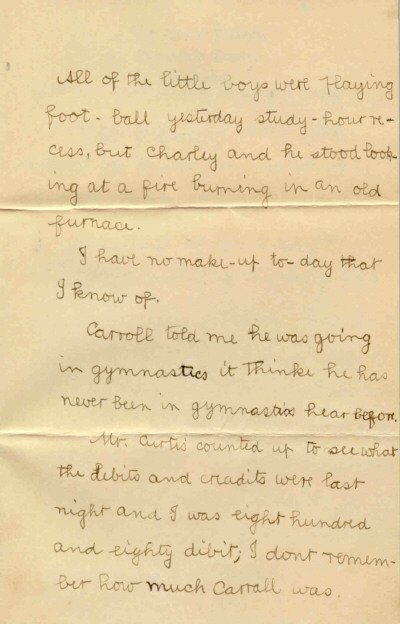 All of the little boys were playing
foot-ball yesterday study-hour re-
cess, but Charley and he stood look-
ing at a fire burning in an old
furnace.
I have no make-up to-day that
I know of.
Carroll told me he was going
in gymnastics it thinke he has
never been in gymnastix hear before.
Mr. Curtis counted up to see what
the debits and creadits were last
night and I was eight hundred
and eighty dibit; I dont remem-
ber how much Carrall was.